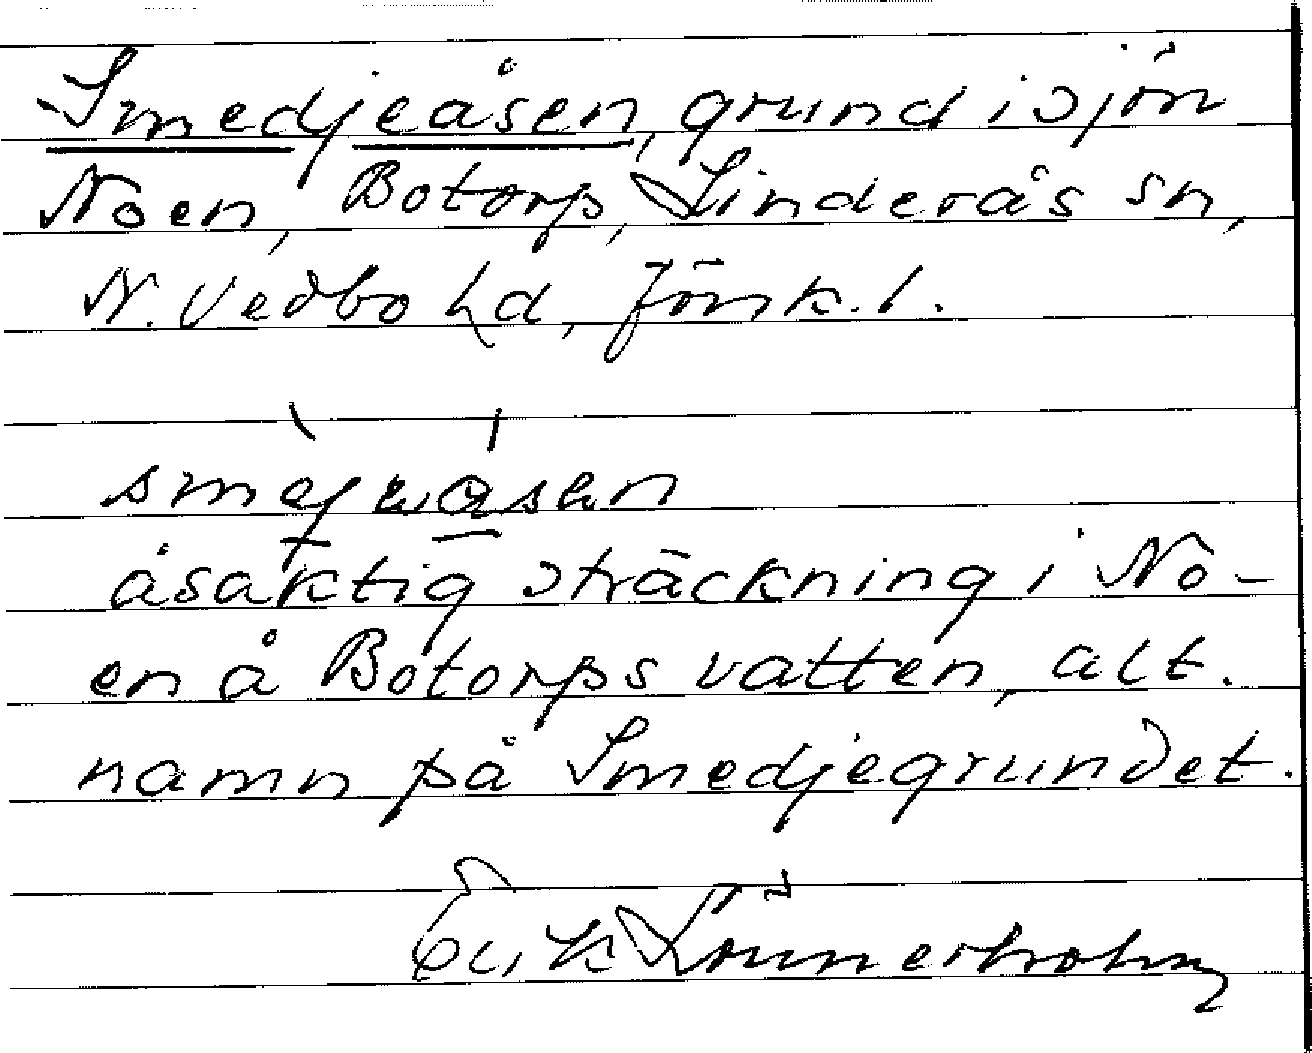 Smedjeåsen, grund i sjön
Noen, Botorp, Linderås sn,
N. Vedbo hd, Jönk. l.
åsaktig sträckning i No-
en å Botorps vatten, alt.
namn på Smedjegrundet.
Erik Lönnerholm